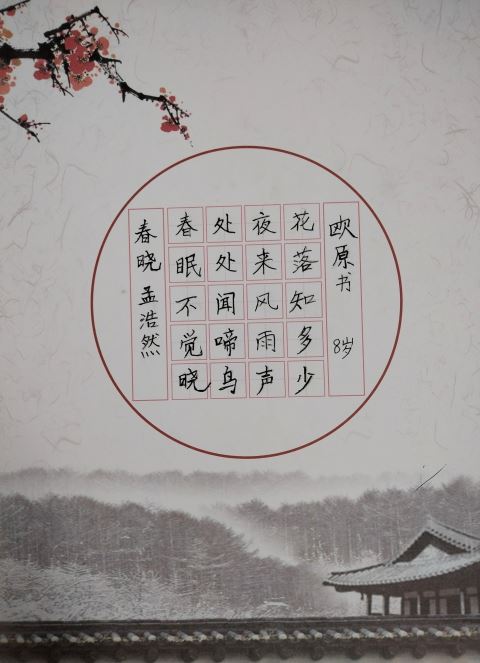 春晓 孟浩然
春眠不觉晓
处处闻啼鸟
夜来风雨声
花落知多少
欧原书 8岁